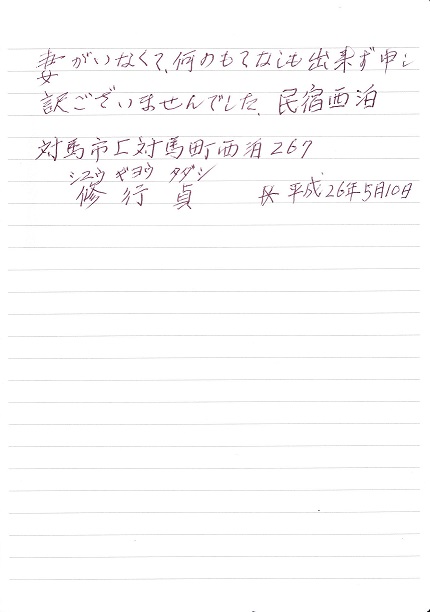 妻がいなくて、何のもてなしも出来ず申し
訳ございませんでした、民宿西泊
対馬市上対馬町西泊267
シュウ ギヨウ タダシ
修 行 貞 平成26年5月10日